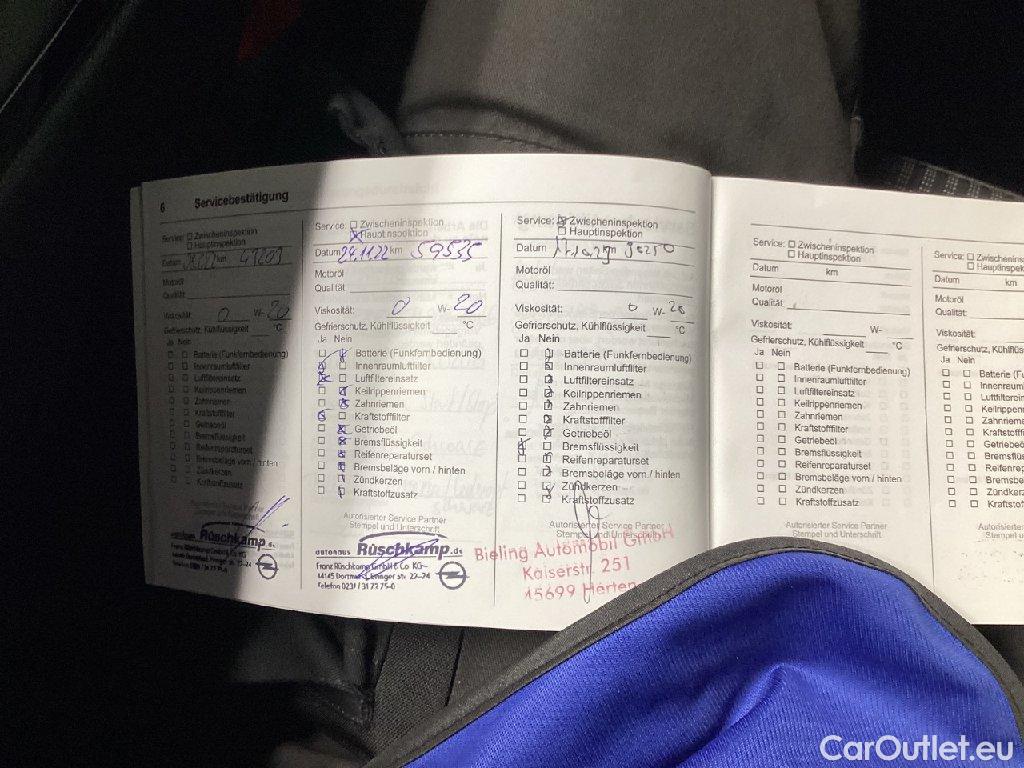 6 Servicebestätigung
Service: Zwischeninspektion
Hauptinspektion
Datum km 41209
Motoröl
Qualität:
Viskosität: 0 W- 20
Gefrierschutz, Kühlflüssigkeit °C
Ja Nein
Batterie (Funkfernbedienung)
Innenraumluftfilter
Luftfiltereinsatz
Keilrippenriemen
Zahnriemen
Kraftstofffilter
Getriebeöl
Bremsflüssigkeit
Reifenreparaturset
Bremsbeläge vorn / hinten
Zündkerzen
Kraftstoffzusatz
Autorisierter Service Partner
Stempel und Unterschrift
Rüschkamp.de
Service: Zwischeninspektion
Hauptinspektion
Datum 29.11.22 km 59535
Motoröl
Qualität
Viskosität: 0 W- 20
Gefrierschutz, Kühlflüssigkeit °C
Ja Nein
Batterie (Funkfernbedienung)
Innenraumluftfilter
Luftfiltereinsatz
Keilrippenriemen
Zahnriemen
Kraftstofffilter
Getriebeöl
Bremsflüssigkeit
Reifenreparaturset
Bremsbeläge vorn / hinten
Zündkerzen
Kraftstoffzusatz
Autorisierter Service Partner
Stempel und Unterschrift
autohaus Rüschkamp.de
Franz Rüschkamp GmbH & Co KG
44145 Dortmund, Evinger str. 22-24
Telefon 0231 / 31 72 75-0
Service: Zwischeninspektion
Hauptinspektion
Datum km
Motoröl
Qualität:
Viskosität: 0 W- 20
Gefrierschutz, Kühlflüssigkeit °C
Ja Nein
Batterie (Funkfernbedienung)
Innenraumluftfilter
Luftfiltereinsatz
Keilrippenriemen
Zahnriemen
Kraftstofffilter
Getriebeöl
Bremsflüssigkeit
Reifenreparaturset
Bremsbeläge vorn / hinten
Zündkerzen
Kraftstoffzusatz
Autorisierter Service Partner
Stempel und Unterschrift
Bieling Automobil GmbH
Kaiserstr. 251
45699 Herten
Service: Zwischeninspektion
Hauptinspektion
Datum km
Motoröl
Qualität:
Viskosität: W-
Gefrierschutz, Kühlflüssigkeit °C
Ja Nein
Batterie (Funkfernbedienung)
Innenraumluftfilter
Luftfiltereinsatz
Keilrippenriemen
Zahnriemen
Kraftstofffilter
Getriebeöl
Bremsflüssigkeit
Reifenreparaturset
Bremsbeläge vorn / hinten
Zündkerzen
Kraftstoffzusatz
Autorisierter Service Partner
Stempel und Unterschrift
Service: Zwischenins
Hauptinspek
Datum km
Motoröl
Qualität:
Viskosität:
Gefrierschutz, Kühlflüss
Ja Nein
Batterie (F
Innenraum
Luftfilterein
Keilrippen
Zahnriem
Kraftstofff
Getriebeö
Bremsflüs
Reifenrep
Bremsbe
Zündkerz
Kraftstof
Autorisiert
Stempel
CarOutlet.eu